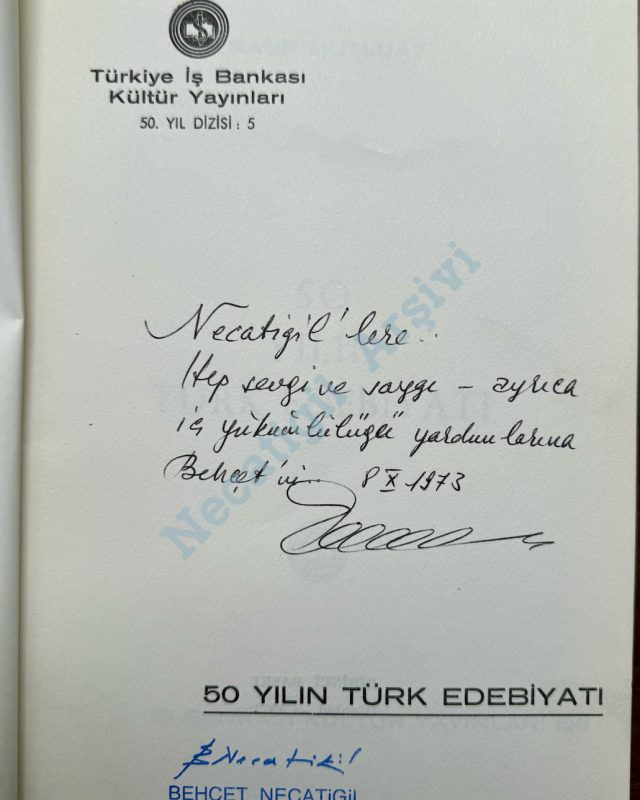 Türkiye İş Bankası
Kültür Yayınları
50. YIL DİZİSİ : 5
Necatigil'lere..
Hep sevgi ve saygı – ayrıca
iç yükümlülüğü yardımlarına
Behçet'in.. 8 X 1973
Necatigil Arşivi
50 YILIN TÜRK EDEBİYATI
B Necatigil
BEHÇET NECATİGİL